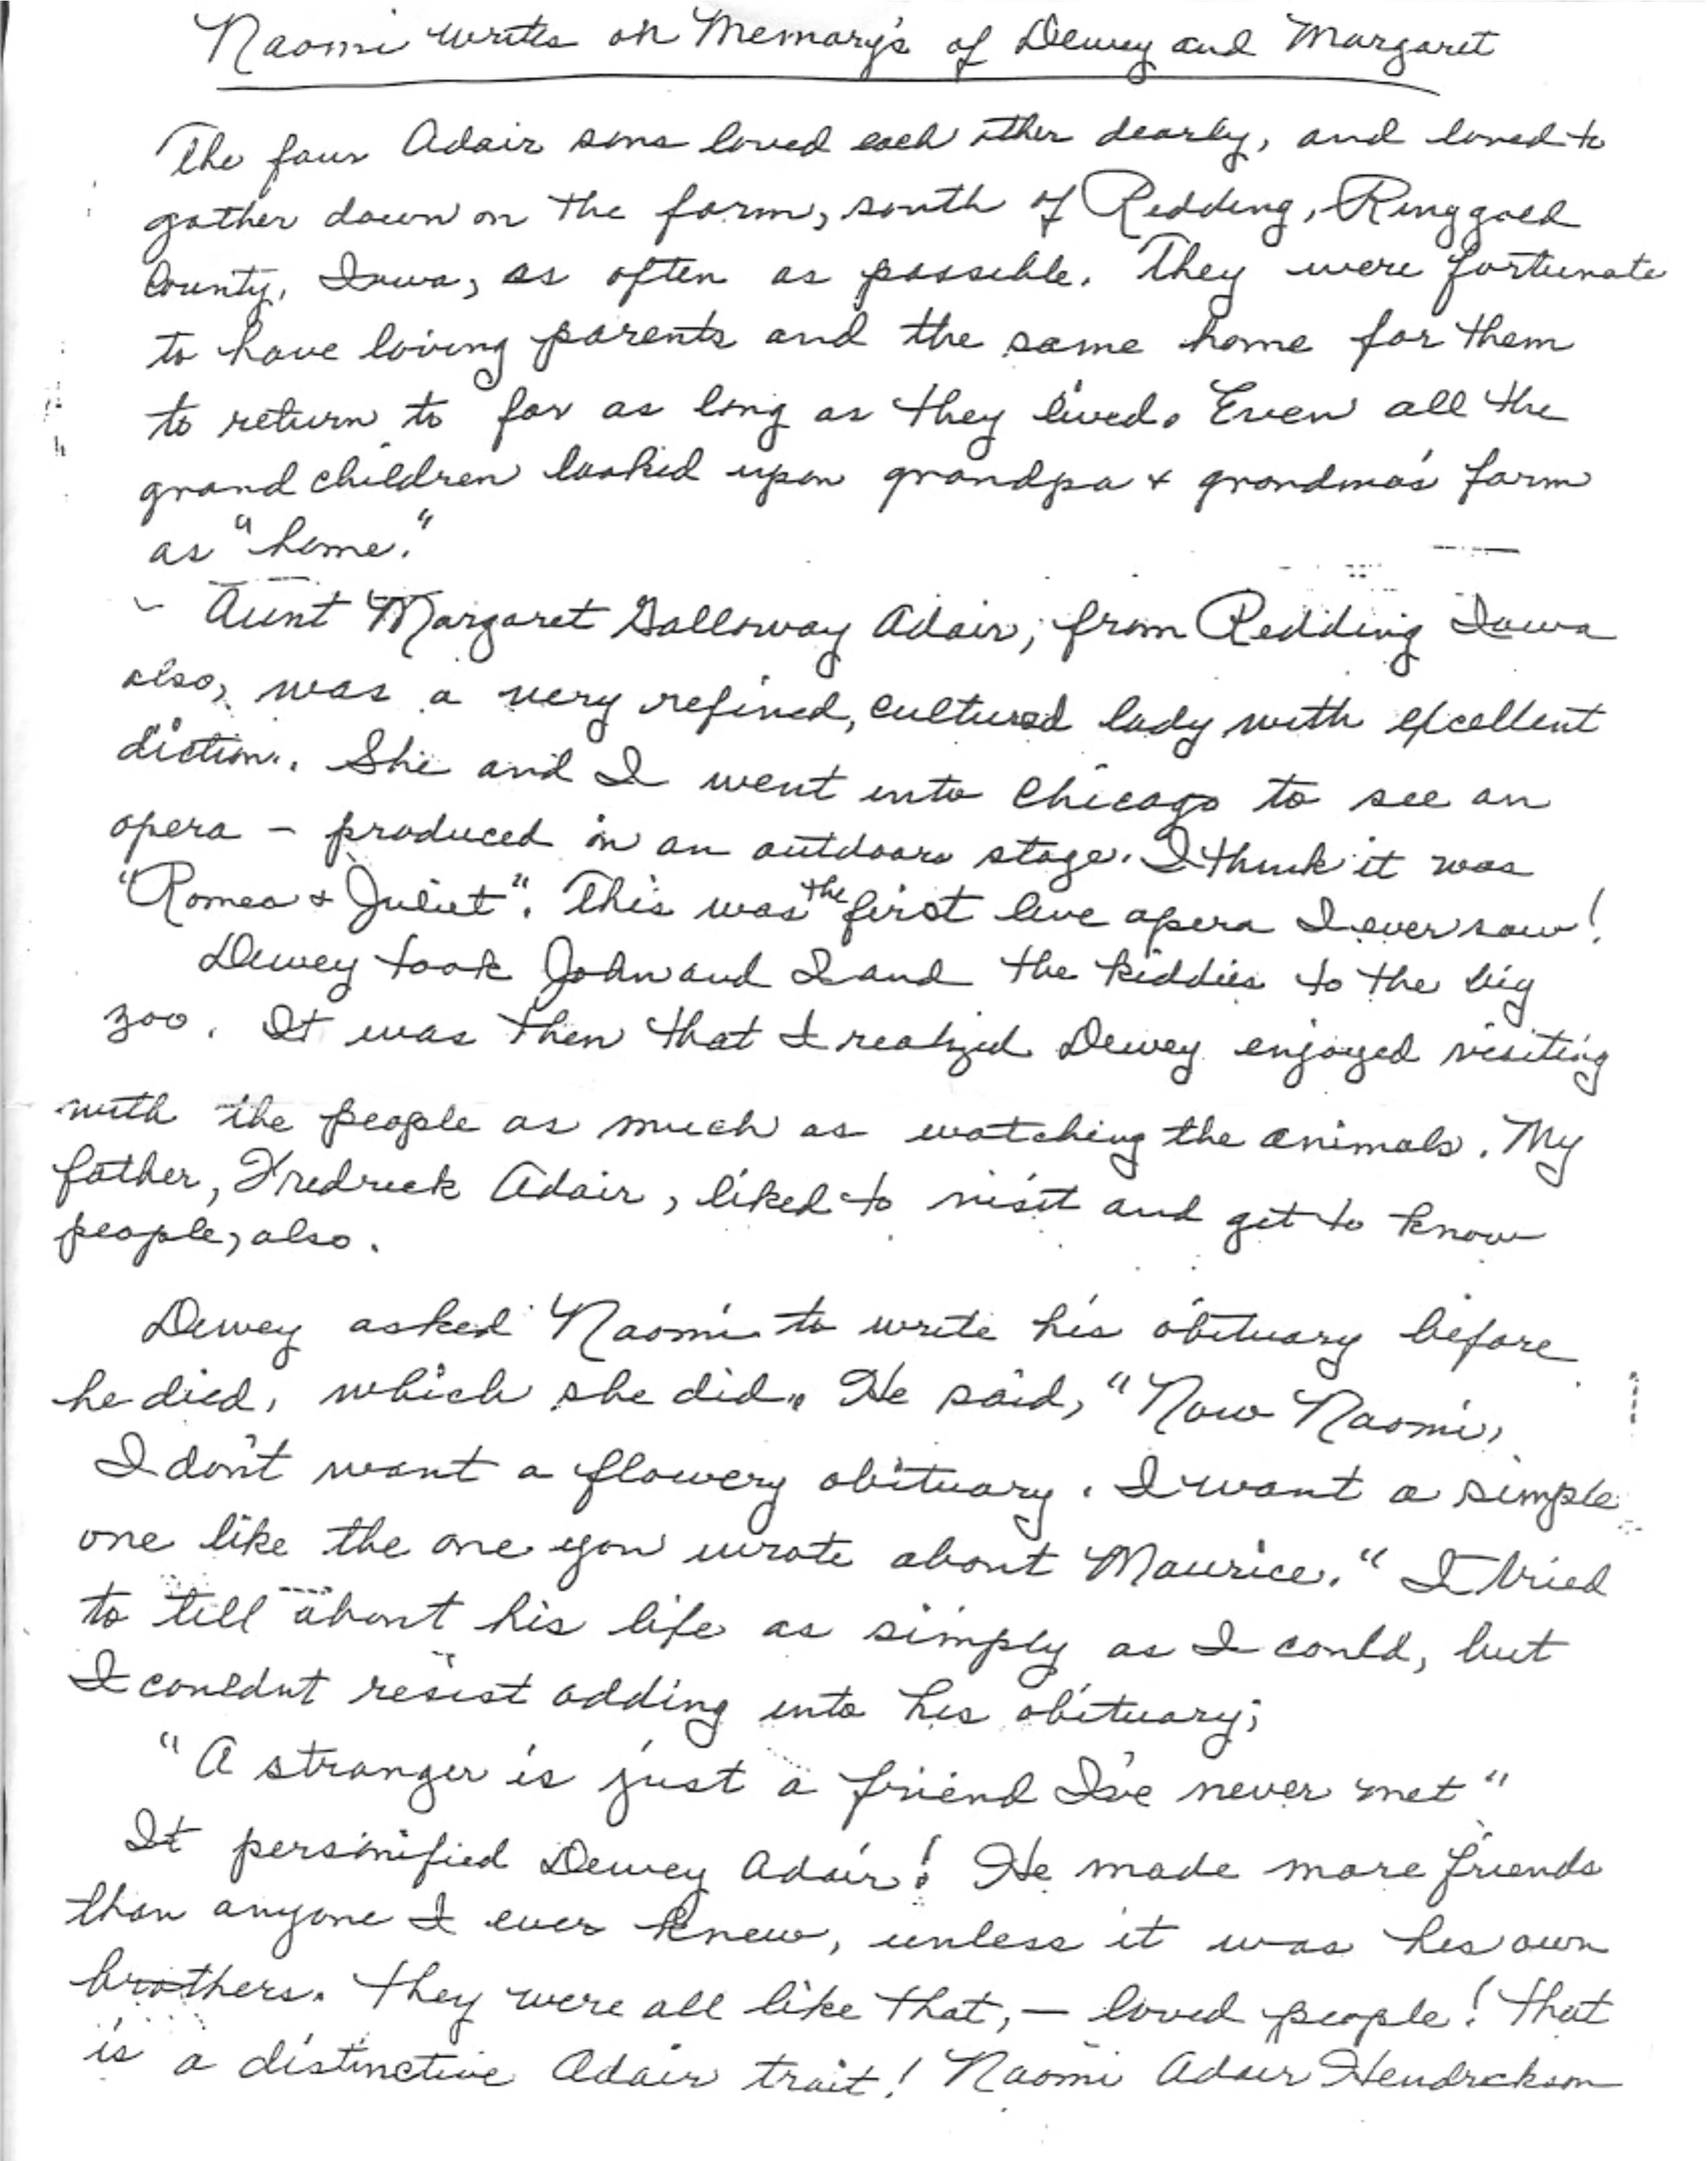 Naomi writes on Memory's of Dewey and Margaret
The four Adair sons loved each other dearly, and loved to
gather down on the farm, south of Redding, Ringgold
County, Iowa, as often as possible. They were fortunate
to have loving parents and the same home for them
to return to for as long as they lived. Even all the
grand children looked upon grandpa + grandma's farm
as "home."
Aunt Margaret Galloway Adair, from Redding Iowa
also, was a very refined, cultured lady with excellent
diction. She and I went into Chicago to see an
opera - produced in an outdoors stage. I think it was
"Romeo + Juliet". This was the first live opera I ever saw!
Dewey took John and I and the kiddies to the big
zoo. It was then that I realized Dewey enjoyed visiting
with the people as much as watching the animals. My
father, Fredrick Adair, liked to visit and get to know
people, also.
Dewey asked Naomi to write his obituary before
he died, which she did. He said, "Now Naomi,
I don't want a flowery obituary. I want a simple
one like the one you wrote about Maurice." I tried
to tell about his life as simply as I could, but
I couldnt resist adding into his obituary;
"A stranger is just a friend I've never met"
It personified Dewey Adair! He made more friends
than anyone I ever knew, unless it was his own
brothers. They were all like that, - loved people! That
is a distinctive Adair trait! Naomi Adair Hendrickson